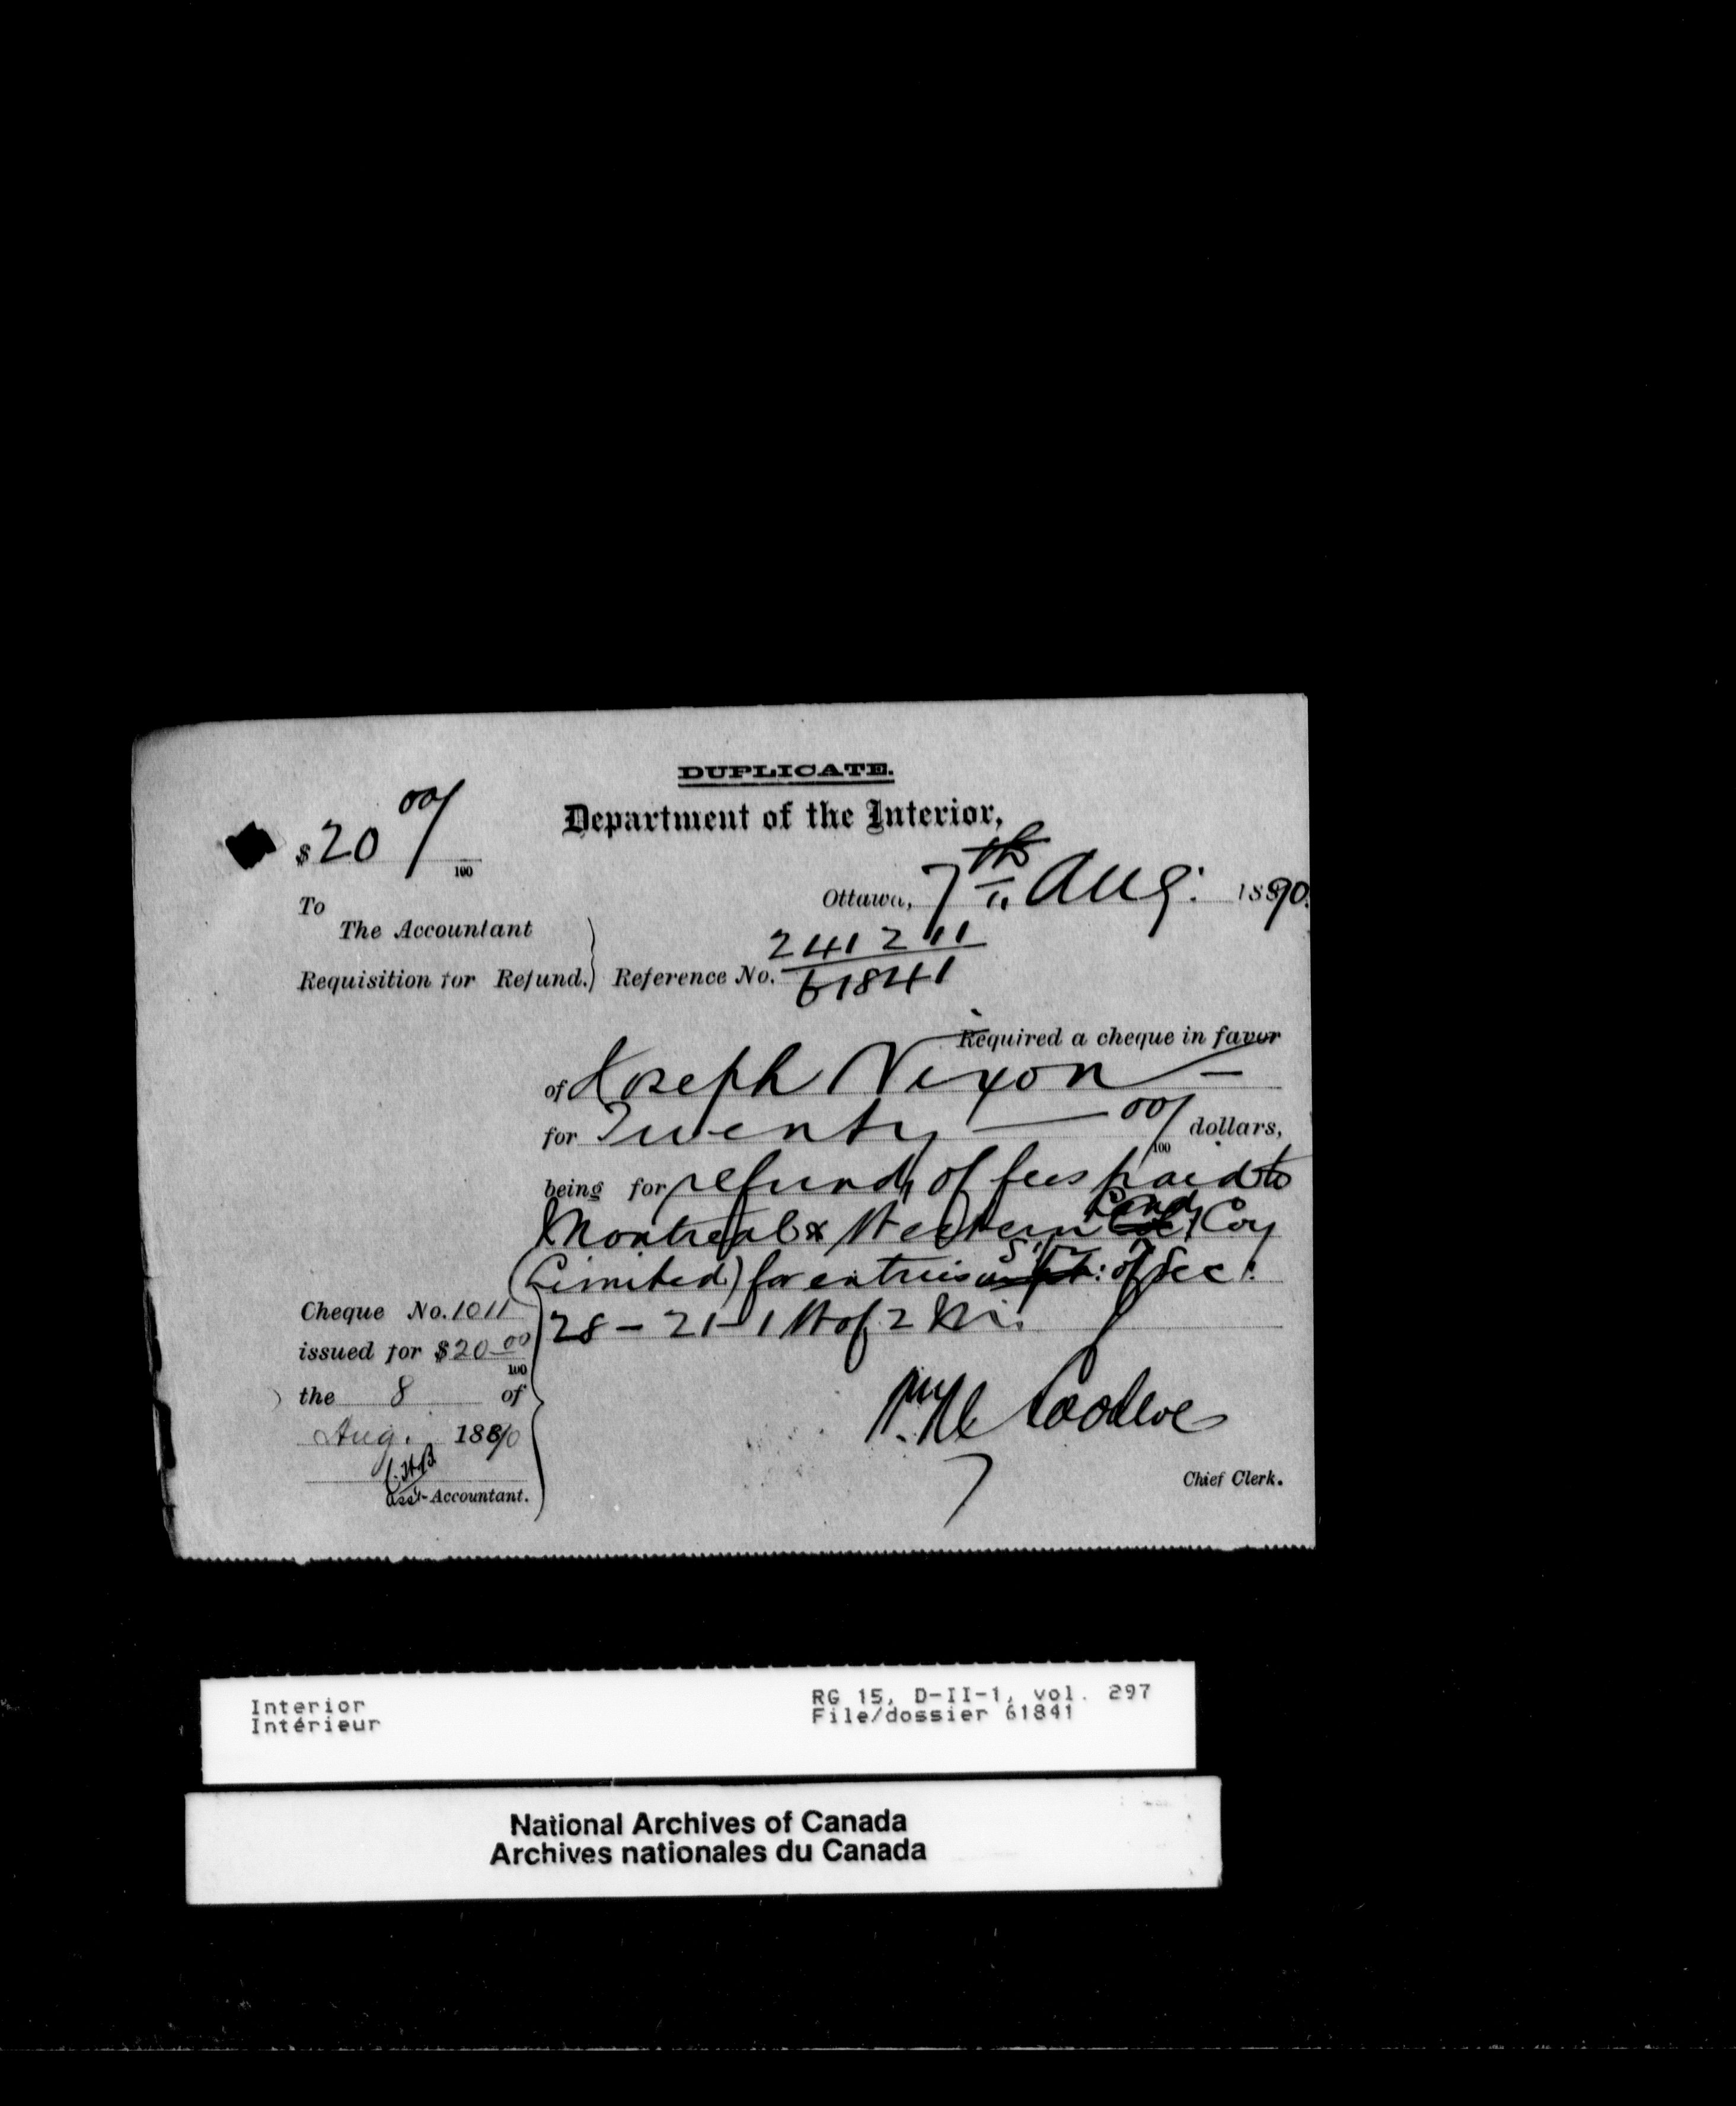 DUPLICATE.
Department of the Interior,
$20 00/100
Ottawa, 7th Aug: 1890.
To
The Accountant
241211
Requisition for Refund.) Reference No. 61841
Required a cheque in favor
of Joseph Nixon —
for Twenty — 00/100 dollars,
being for refund of fees paid to
Montreal & Western Land Coy
(Limited) for entries S. 1/2 of Sec:
28 - 21 - 1 W of 2 M.
Cheque No. 1011
issued for $20 00/100
the 8 of
Aug. 1890
Asst-Accountant.
Chief Clerk.
Interior
Intérieur
RG 15, D-II-1, vol. 297
File/dossier 61841
National Archives of Canada
Archives nationales du Canada